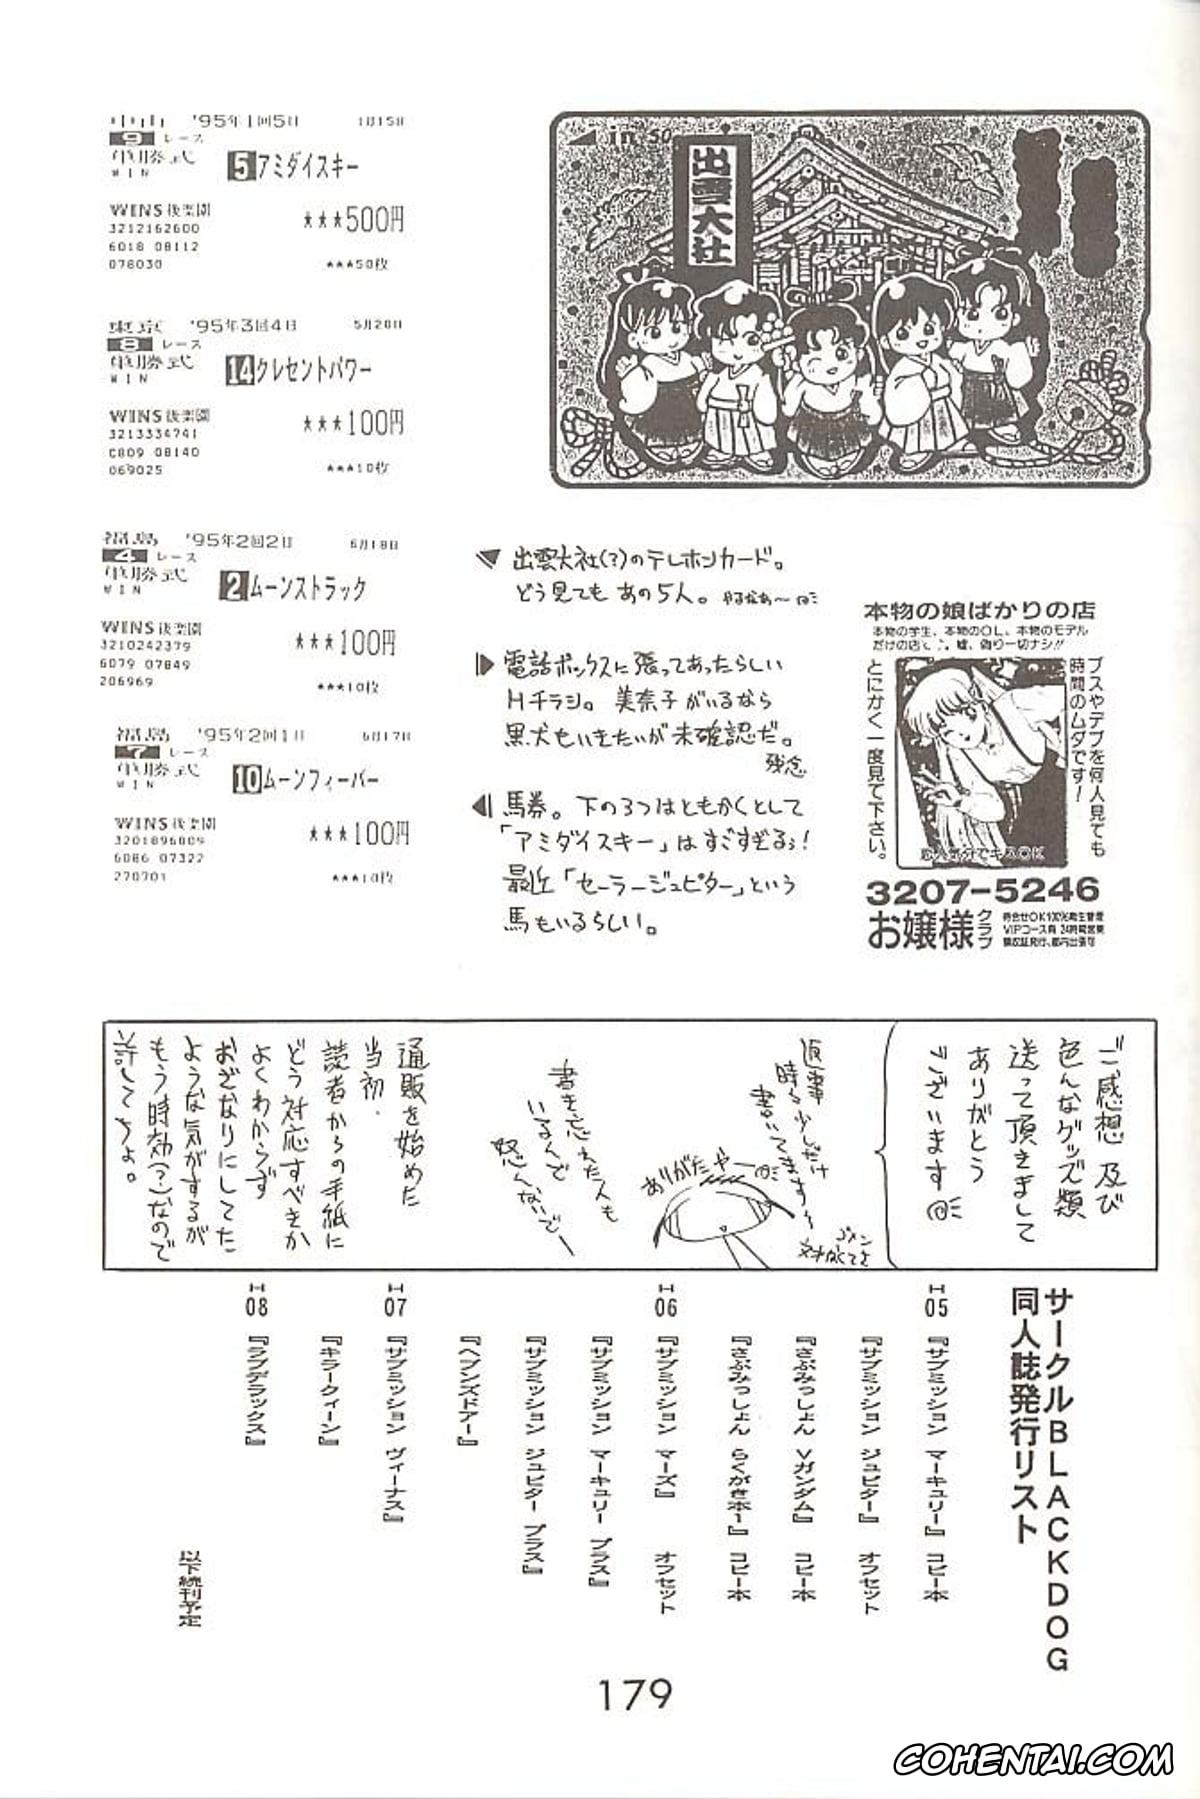 中山 '95年1回5日 1月15日
9 レース
単勝式 5 アミダイスキー
WIN
WINS後楽園 ★★★500円
3212162600
6018 08112
078030 ★★★50枚
東京 '95年3回4日 5月20日
8 レース
単勝式 14 クレセントパワー
WIN
WINS後楽園 ★★★100円
3213334741
C809 08140
069025 ★★★10枚
福島 '95年2回2日 6月18日
4 レース
単勝式 2 ムーンストラック
WIN
WINS後楽園 ★★★100円
3210242379
6079 07849
206969 ★★★10枚
福島 '95年2回1日 6月17日
7 レース
単勝式 10 ムーンフィーバー
WIN
WINS後楽園 ★★★100円
3201896809
6086 07322
270701 ★★★10枚
in 50
出雲大社
出雲大社(?)のテレホンカード。
どう見てもあの5人。やるなぁ〜
電話ボックスに張ってあったらしい
Hチラシ。美奈子がいるなら
黒犬もいきたいが未確認だ。
残念
馬券。下の3つはともかくとして
「アミダイスキー」はすごすぎるぅ!
最近「セーラージュピター」という
馬もいるらしい。
本物の娘ばかりの店
本物の学生、本物のOL、本物のモデル
だけの店です。嘘、偽り一切ナシ!!
ブスやデブを何人見ても
時間のムダです!
とにかく一度見て下さい。
恋人気分でキスOK
3207-5246
お嬢様クラブ
待合せOK100%衛生管理
VIPコース有 24時間営業
領収証発行、都内出張可
ご感想 及び
色んなグッズ類
送って頂きまして
ありがとう
ございます
返事
時々少しだけ
書いてます〜
ゴメン
書き忘れた人も
いるんで
怒んないでー
ありがたやー
通販を始めた
当初、
読者からの手紙に
どう対応すべきか
よくわからず
おざなりにしてた
ような気がするが
もう時効(?)なので
許してちょ。
サークルBLACKDOG
同人誌発行リスト
H05 『サブミッション マーキュリー』 コピー本
『サブミッション ジュピター』 オフセット
『さぶみっしょん Vガンダム』 コピー本
『さぶみっしょん らくがき本1』 コピー本
H06 『サブミッション マーズ』 オフセット
『サブミッション マーキュリー プラス』
『サブミッション ジュピター プラス』
『ヘブンズドアー』
H07 『サブミッション ヴィーナス』
『キラークィーン』
H08 『ラブデラックス』
以下続刊予定
179
COHENTAI.COM